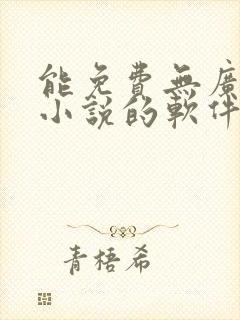 能免費無廣
小說的軟件
青梧希